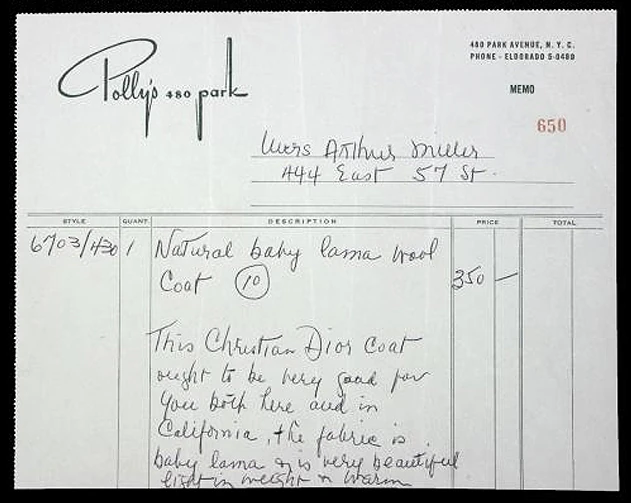 Polly's 480 park
480 PARK AVENUE, N. Y. C.
PHONE - ELDORADO 5-0480
MEMO
650
Mrs Arthur Miller
444 East 57 St.
STYLE QUANT. DESCRIPTION PRICE TOTAL
6703/430 1 Natural baby lama wool
Coat 10 350 —
This Christian Dior Coat
ought to be very good for
you both here and in
California, the fabric is
baby lama & is very beautiful
light in weight & warm